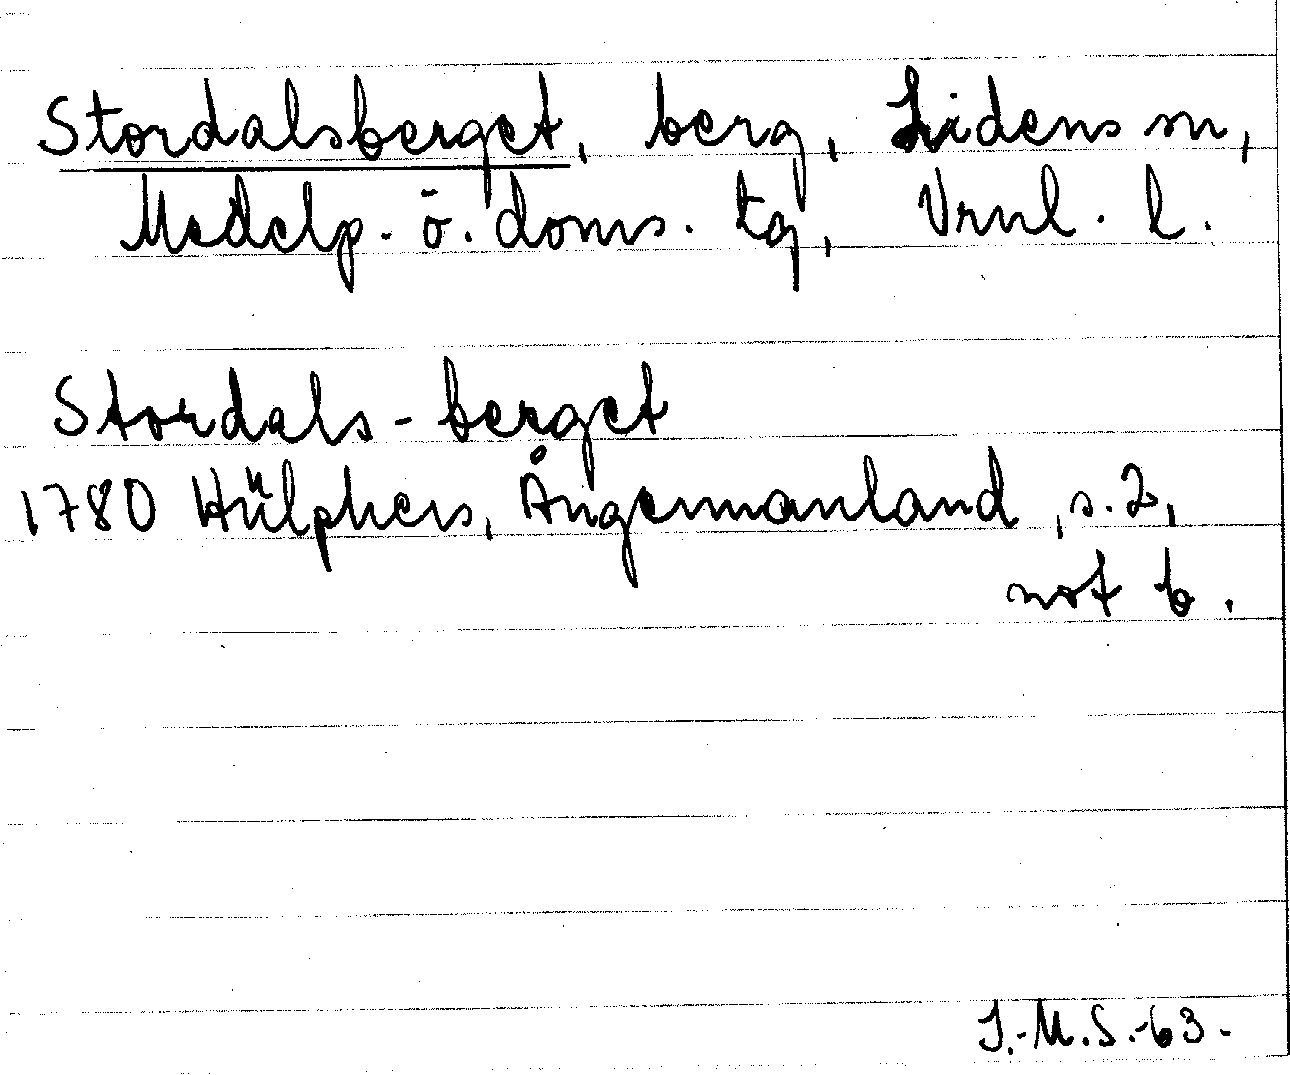 Stordalsberget, berg, Lidens sn,
Medelp. ö. doms. tg, Vrnl. l.
Stordals-berget
1780 Hülphers, Ångermanland, s. 2,
not b.
J.-M.S.-63-